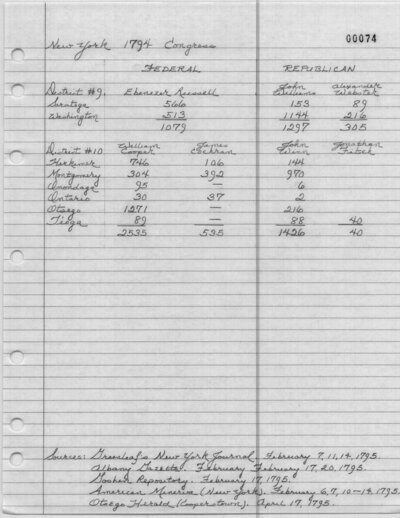 00074
New York 1794 Congress
FEDERAL REPUBLICAN
District #9. Ebenezer Russell John Williams Alexander Webster
Saratoga 566 153 89
Washington 513 1144 216
1079 1297 305
District #10 William Cooper James Cochran John Winn Jonathan
Herkimer 746 106 144
Montgomery 304 392 970
Onondaga 95 — 6
Ontario 30 37 2
Otsego 1271 — 216
Tioga 89 — 88 40
2535 535 1426 40
Sources: Greenleaf's New York Journal. February 7, 11, 14, 1795.
Albany Gazette. February February 17, 20, 1795.
Goshen Repository. February 17, 1795.
American Minerva (New York). February 6, 7, 10-14, 1795.
Otsego Herald (Cooperstown). April 17, 1795.